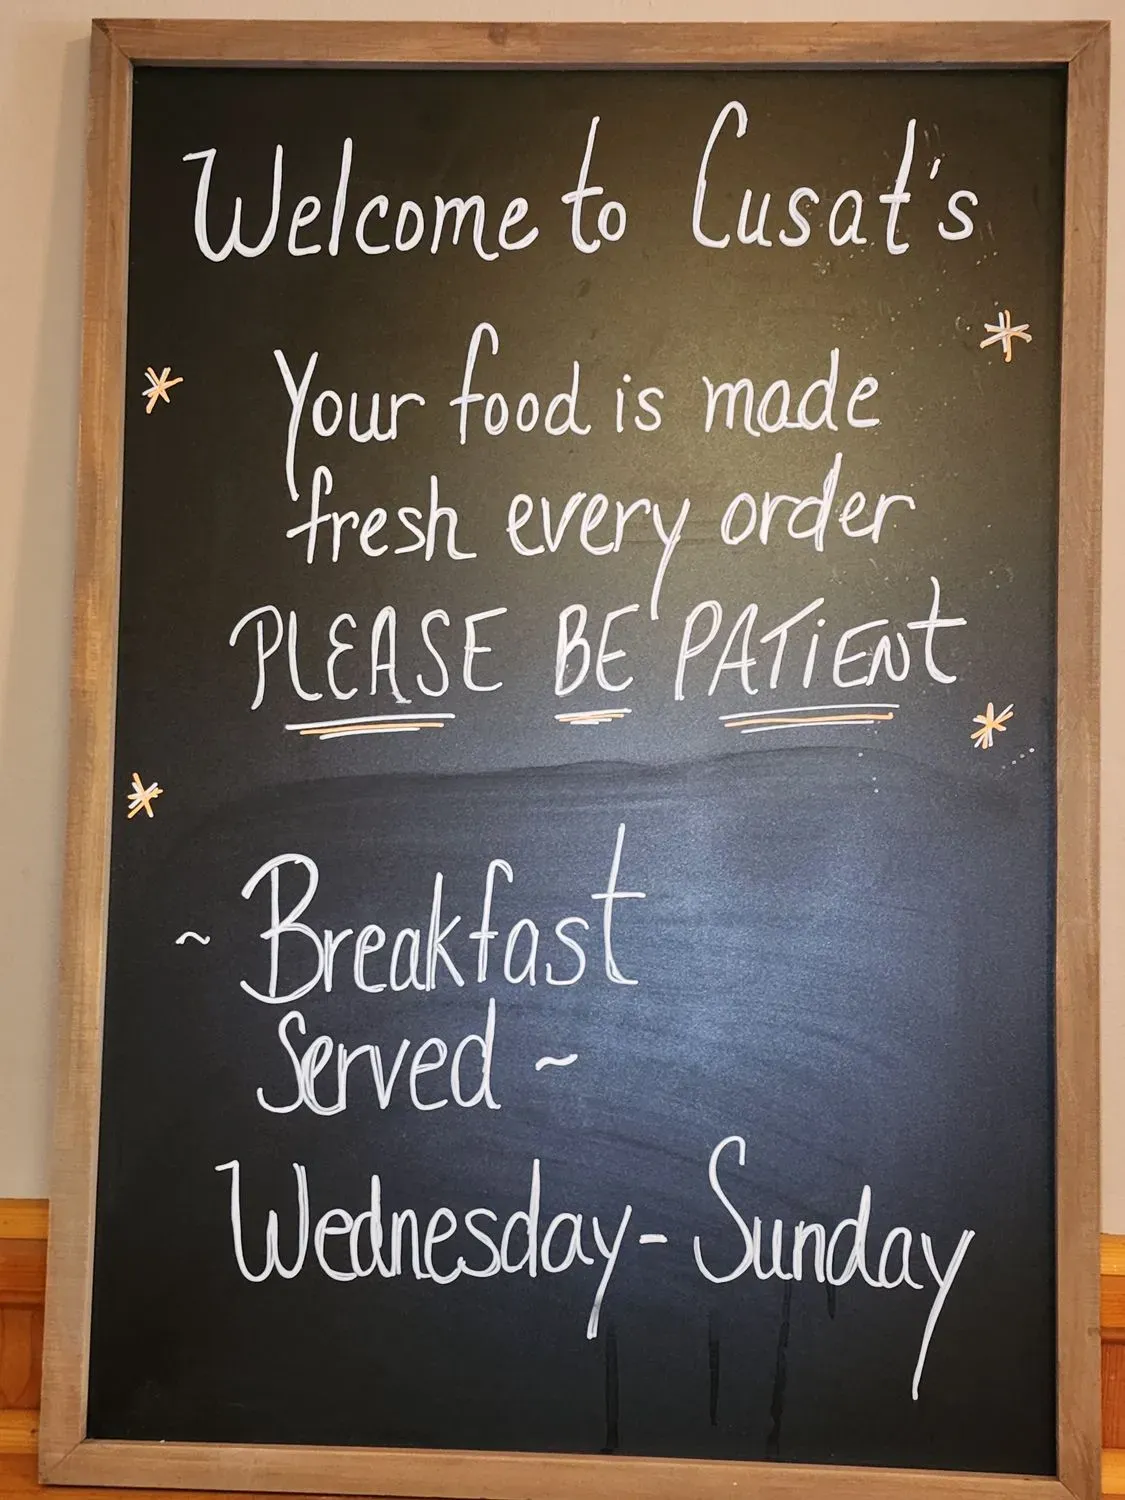 Welcome to Cusat's
Your food is made
fresh every order
PLEASE BE PATiENt
~ Breakfast
Served ~
Wednesday - Sunday